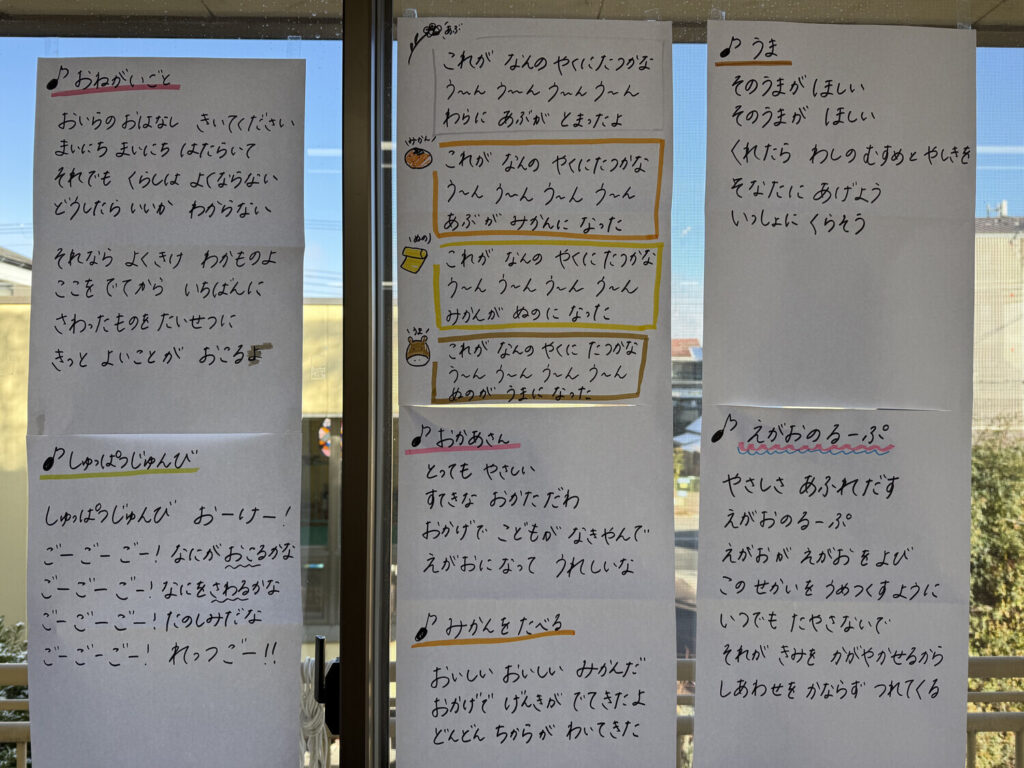 おねがいごと
おいらのおはなし きいてください
まいにち まいにち はたらいて
それでも くらしは よくならない
どうしたら いいか わからない
それなら よくきけ わかものよ
ここを でてから いちばんに
さわったものを たいせつに
きっと よいことが おこるよ
しゅっぱつじゅんび
しゅっぱつじゅんび おーけー!
ごーごーごー!なにがおこるかな
ごーごーごー!なにをさわるかな
ごーごーごー!たのしみだな
ごーごーごー! れっつごー!!
あぶ
これが なんの やくにたつかな
う〜ん う〜ん う〜ん う〜ん
わらに あぶが とまったよ
みかん
これが なんの やくにたつかな
う〜ん う〜ん う〜ん う〜ん
あぶが みかんに なった
ぬの
これが なんの やくに たつかな
う〜ん う〜ん う〜ん う〜ん
みかんが ぬのに なった
うま
これが なんの やくに たつかな
う〜ん う〜ん う〜ん う〜ん
ぬのが うまに なった
おかあさん
とっても やさしい
すてきな おかただわ
おかげで こどもが なきやんで
えがおになって うれしいな
みかんをたべる
おいしい おいしい みかんだ
おかげで げんきが でてきたよ
どんどん ちからが わいてきた
うま
そのうまが ほしい
そのうまが ほしい
くれたら わしの むすめと やしきを
そなたに あげよう
いっしょに くらそう
えがおのるーぷ
やさしさ あふれだす
えがおのるーぷ
えがおが えがおをよび
この せかいを うめつくすように
いつでも たやさないで
それが きみを かがやかせるから
しあわせを かならず つれてくる